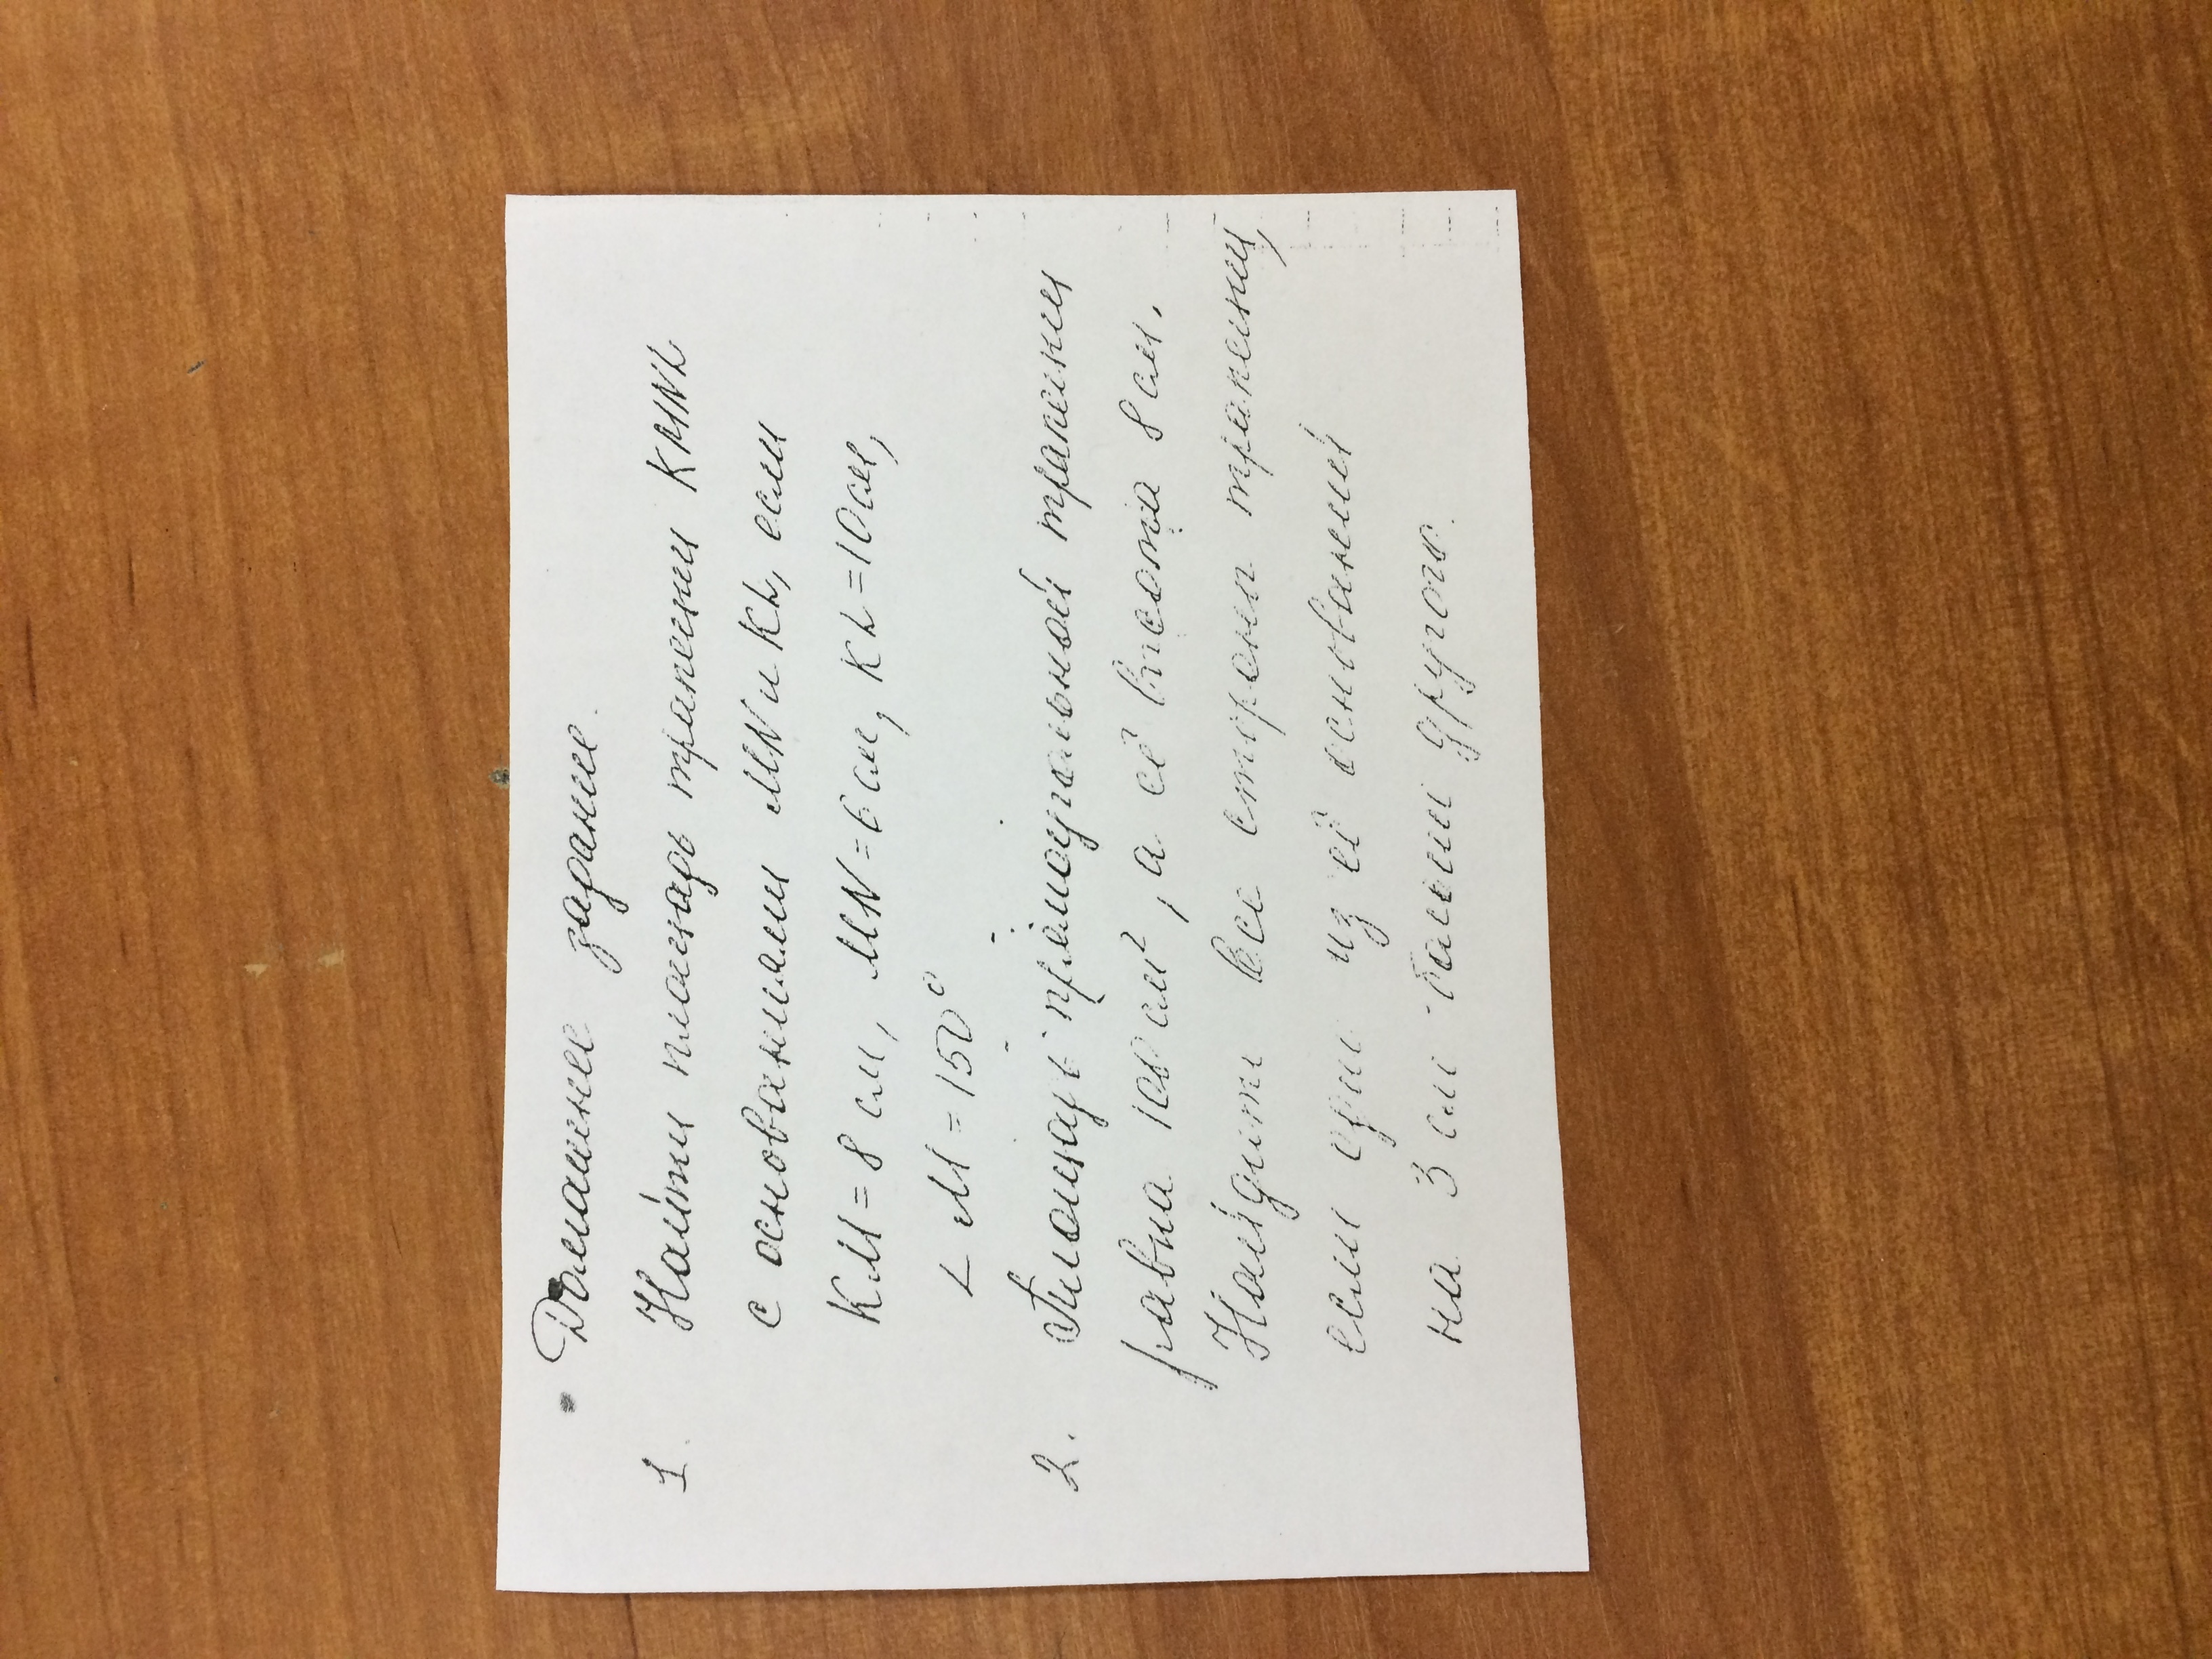 Домашнее задание.
1. Найти площадь трапеции KMNL
с основаниями MN и KL, если
KM = 8 см, MN = 6 см, KL = 10 см,
∠ M = 150°
2. Площадь прямоугольной трапеции
равна 100 см², а её высота 8 см.
Найдите все стороны трапеции,
если одно из её оснований
на 3 см больше другого.